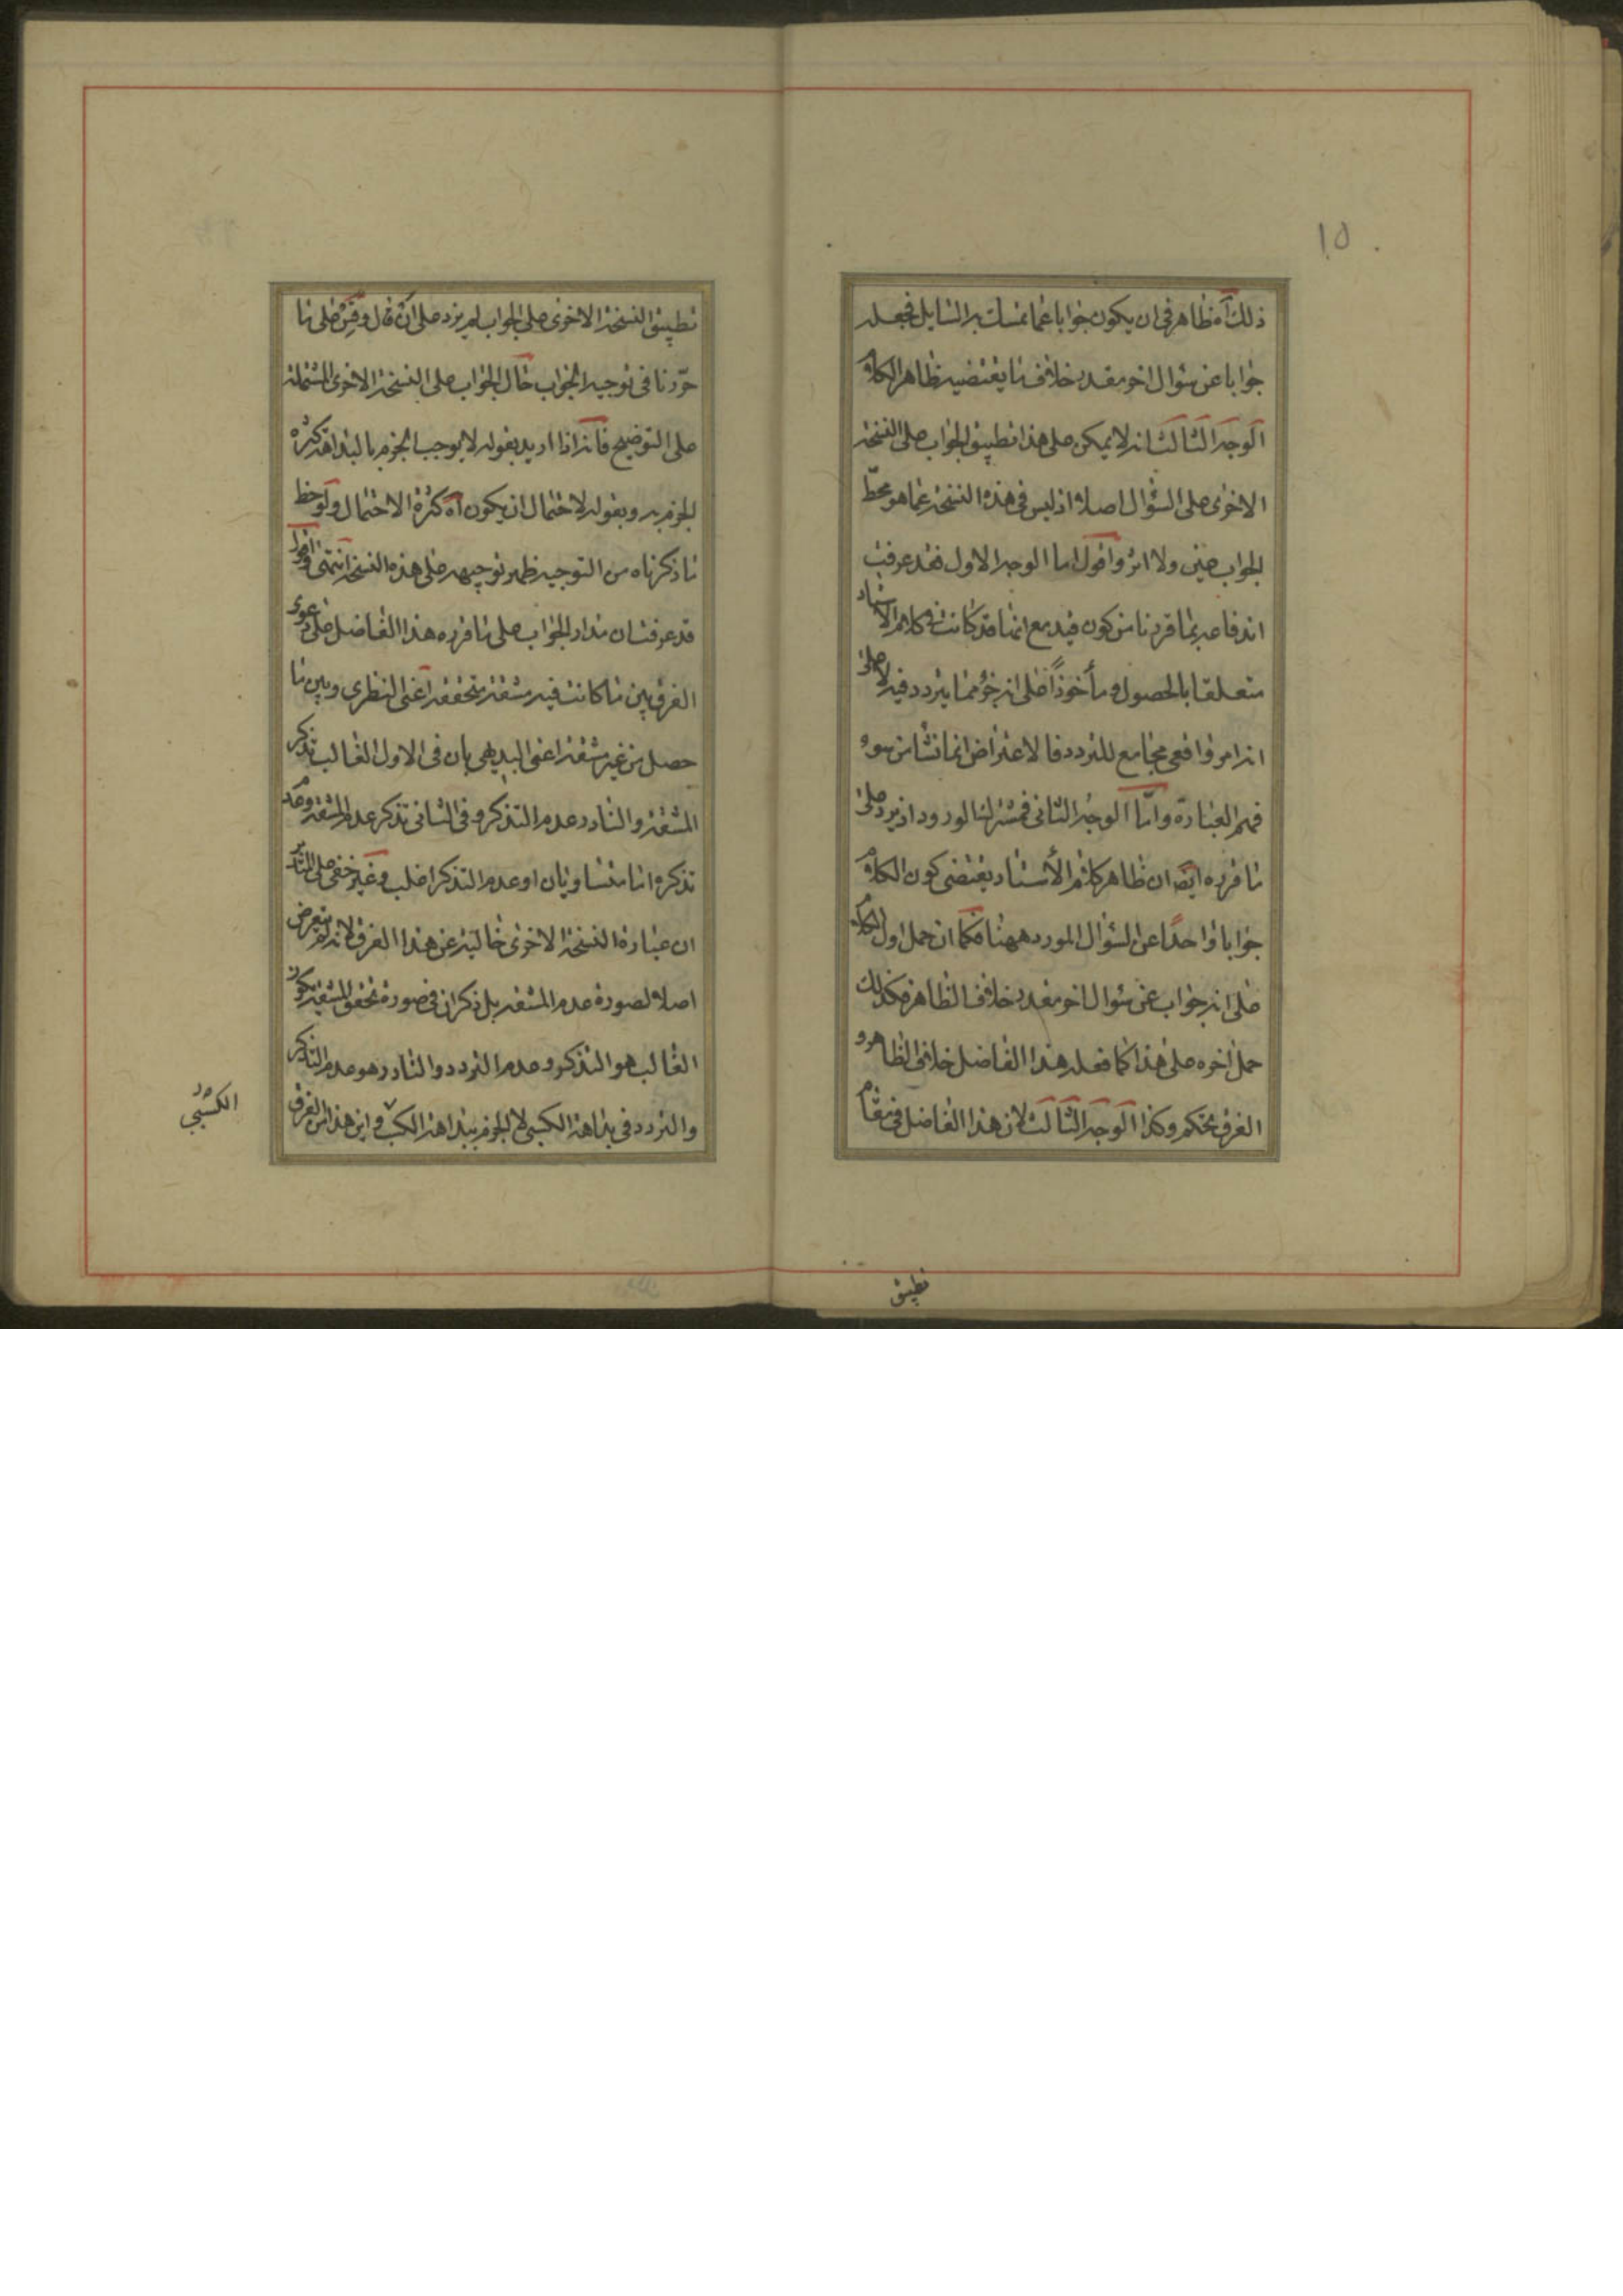 ١٥
ذلك آه ظاهر فى ان يكون جوابا عما تمسك به السايل فجعله
جوابا عن سؤال اخر مقدر خلاف ما يقتضيه ظاهر الكلام
الوجه الثالث انه لا يمكن على هذا تطبيق الجواب على النسخة
الاخرى على السؤال اصلا اذ ليس فى هذه النسخة عما هو محطّ
الجواب عين ولا اثر واقول اما الوجه الاول فقد عرفت
اندفاعه بما قررنا من كون قيد مع انها قد كانت فى كلام الاستاد
متعلقا بالحصول ومأخوذًا على انه جزؤ مما يتردد فيه لا على
انه امر واقعى مجامع للتردد فالاعتراض انما نشأ من سوء
فهم العبارة وامّا الوجه الثانى فمشترك الورود اذ يرد على
ما قرره ايضا ان ظاهر كلام الأستاد يقتضى كون الكلام
جوابا واحدًا عن السؤال المورد ههنا فكما ان حمل اول الكلام
على انه جواب عن سؤال اخر مقدر خلاف الظاهر فكذلك
حمل اخره على هذا كما فعله هذا الفاضل خلاف الظاهر و
الفرق تحكم وكذا الوجه الثالث لان هذا الفاضل فى مقام
تطبيق
تطبيق النسخة الاخرى على الجواب لم يزد على ان قال وقس على ما
حررنا فى توجيه الجواب حال الجواب على النسخة الاخرى المشتملة
على التوضيح فانه اذا اريد بقوله لا يوجب الجزم بالبداهة كثرة
الجزم به وبقوله لاحتمال ان يكون آه كثرة الاحتمال ولوحظ
ما ذكرناه من التوجيه ظهر توجيهه على هذه النسخة انتهى واقول
قد عرفت ان مدار الجواب على ما قرره هذا الفاضل على دعوى
الفرق بين ما كانت فيه مشقة متحققة اعنى النظرى وبين ما
حصل من غير مشقة اعنى البديهى بان فى الاول الغالب تذكر
المشقة والنادر عدم التذكر وفى الثانى تذكر عدم المشقة وعدم
تذكره اما متساويان او عدم التذكر اغلب وغير خفى على المتأمل
ان عبارة النسخة الاخرى خالية عن هذا الفرق لانه لم يتعرض
اصلا لصورة عدم المشقة بل ذكر ان فى صورة تحقق المشقة يكون
الغالب هو التذكر وعدم التردد والنادر هو عدم التذكر
والتردد فى بداهة الكسبى لا الجزم ببداهة الكسب واين هذا من الفرق
الكسبى